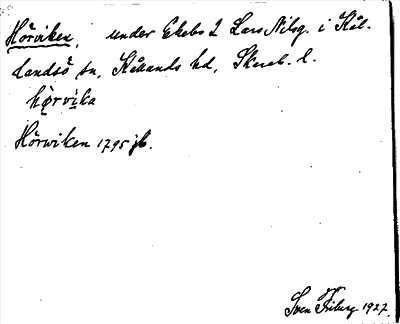 Hörviken, under Ekebo 2 Lars Nilsg. i Kål-
landsö sn, Kållands hd, Skarab. l.
hö̀rvika
Hörwiken 1795 jb.
Sven Friberg 1927.